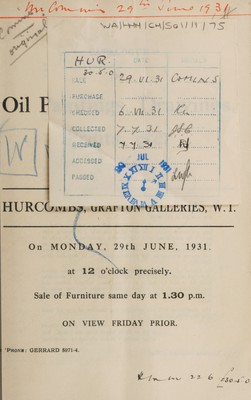 In Commin 29th June 1931
WA/HMM/CM/Sal/11/75
HUR.
30.5.0
Oil P
DATE 29.VI.31 COMINS
PURCHASE
CHECKED 6.VII.31
COLLECTED 7.7.31
RECEIVED 7.7.31
ACCESSED
PASSED
JUL
1931
W
HURCOMBS, GRAFTON GALLERIES, W.1.
On MONDAY, 29th JUNE, 1931.
at 12 o'clock precisely.
Sale of Furniture same day at 1.30 p.m.
ON VIEW FRIDAY PRIOR.
'PHONE: GERRARD 5971-4.